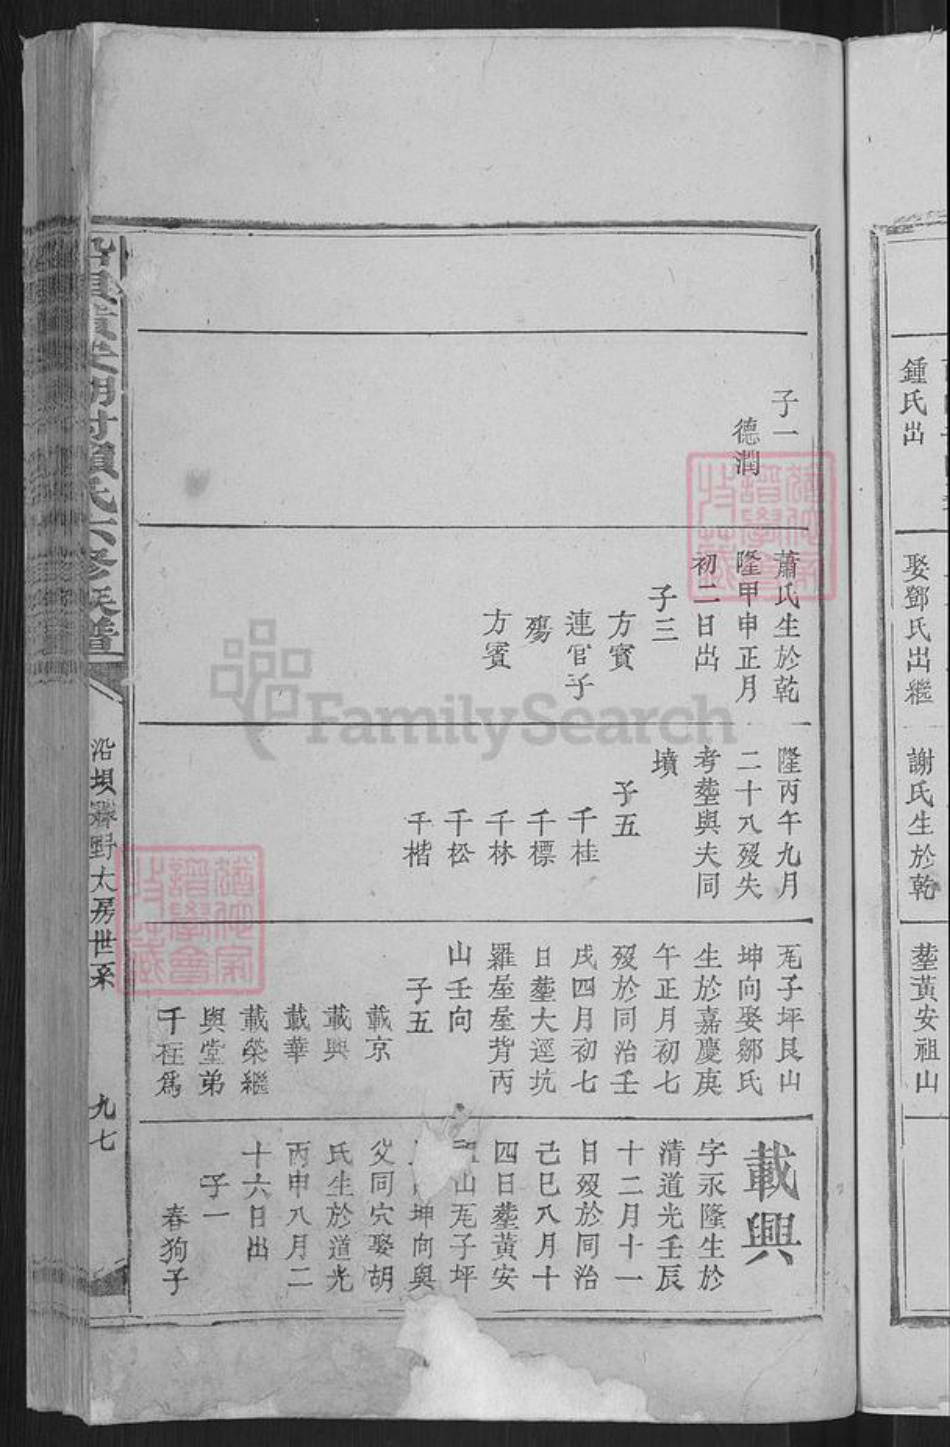 鍾氏出
娶鄧氏出繼
謝氏生於乾
塟黃安祖山
子一
德潤
蕭氏生於乾
隆甲申正月
初二日出
子三
方賓
連官子
殤
方賓
隆丙午九月
二十八歿失
考塟與夫同
墳
子五
千桂
千標
千林
千松
千楷
厑子坪艮山
坤向娶鄒氏
生於嘉慶庚
午正月初七
歿於同治壬
戌四月初七
日塟大逕坑
羅屋屋背丙
山壬向
子五
載京
載興
載華
載榮繼
與堂弟
千在爲
載興
字永隆生於
清道光壬辰
十二月十一
日歿於同治
己巳八月十
四日塟黃安
山厑子坪
坤向與
父同穴娶胡
氏生於道光
丙申八月二
十六日出
子一
春狗子
沿垻黃安湖村賴氏六修族譜
沿垻 野太房世系
九七
FamilySearch